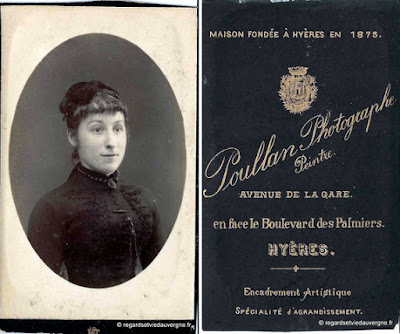 MAISON FONDÉE À HYÈRES EN 1875.
Poullan Photographe
Peintre.
AVENUE DE LA GARE.
en face le Boulevard des Palmiers.
HYÈRES.
Encadrement Artistique
SPÉCIALITÉ D'AGRANDISSEMENT.
© regardsetviedauvergne.fr
© regardsetviedauvergne.fr